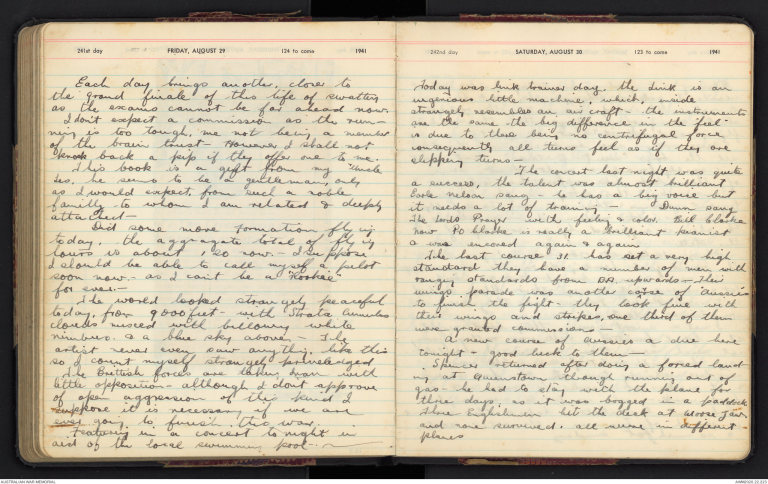 241st day FRIDAY, AUGUST 29 124 to come 1941
Each day brings another, closer to
the grand finale of this life of swatting
as the exams cannot be far ahead now.
I don't expect a commission as the run-
ning is too tough, me not being a member
of the brain trust - However I shall not
knock back a pip if they offer one to me.
This book is a gift from my Uncle
Les, he seems to be a gentleman, only
as I would expect from such a noble
family to whom I am related & deeply
attached -
Did some more formation flying
today. the aggragate total of flying
hours is about 150 now - I suppose
I should be able to call myself a pilot
soon now - as I can't be a "Rookie"
for ever -
The world looked strangely peaceful
today, from 9000 feet - with Strato Cumulus
clouds mixed with billowing white
nimbus. & a blue sky above - The
artist never even saw anything like this
so I count myself strangely priveleged
The British forces are taking Iran with
little opposition - although I dont approve
of open aggression of this kind I
suppose it is necessary if we are
ever going to finish this war.
Featuring in a concert to night in
aid of the local swimming pool -
242nd day SATURDAY, AUGUST 30 123 to come 1941
Today was link trainer day. the link is an
ingenious little machine, which, inside
strangely resembles an air craft - the instruments
are the same the big difference in the "feel"
is due to there being no centrifugal force
consequently all turns feel as if they are
slipping turns -
The concert last night was quite
a success, the talent was almost brilliant
Earle Nelson sang - he has a big voice but
it needs a lot of training - Dunn sang
The Lords Prayer with feeling & color. Bill Clarke
now PO Clarke is really a brilliant pianist
& was encored again & again
The last course 31. has set a very high
standard they have a number of men with
ranging standards from BA upwards - Their
wings parade was another case of "Aussies"
to finish the fight - they look fine with
their wings and stripes, one third of them
were granted commissions -
A new course of Aussies a due here
tonight - good luck to them -
Spencer returned after doing a forced land
ing at Queenstown through running out of
gas - he had to stay with the plane for
three days, as it was bogged in a paddock
Three Englishmen hit the deck at Moose Jaw
and none survived. all were in different
planes
AUSTRALIAN WAR MEMORIAL